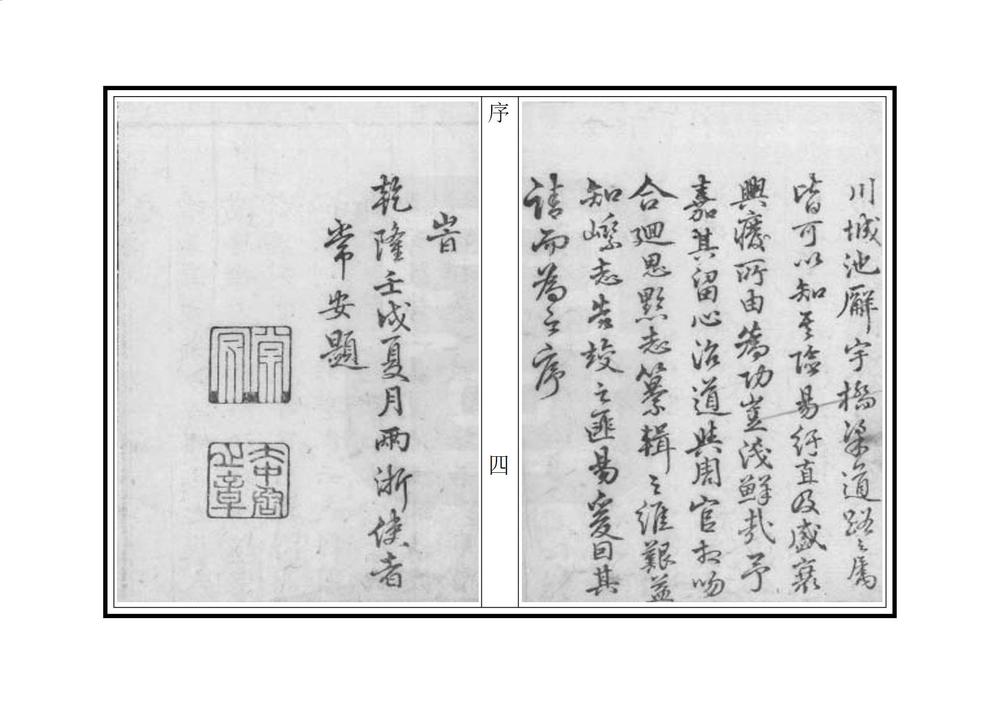 川城池廨宇橋梁道路之屬
皆可以知其險易紆直及盛衰
興廢所由爲功豈淺鮮哉予
嘉其留心治道與周官相吻
合廻思黔志纂輯之維艱益
知嵊志告竣之匪易爰因其
請而為之序
序
四
旹
乾隆壬戌夏月兩浙使者
常安題
常安
之章